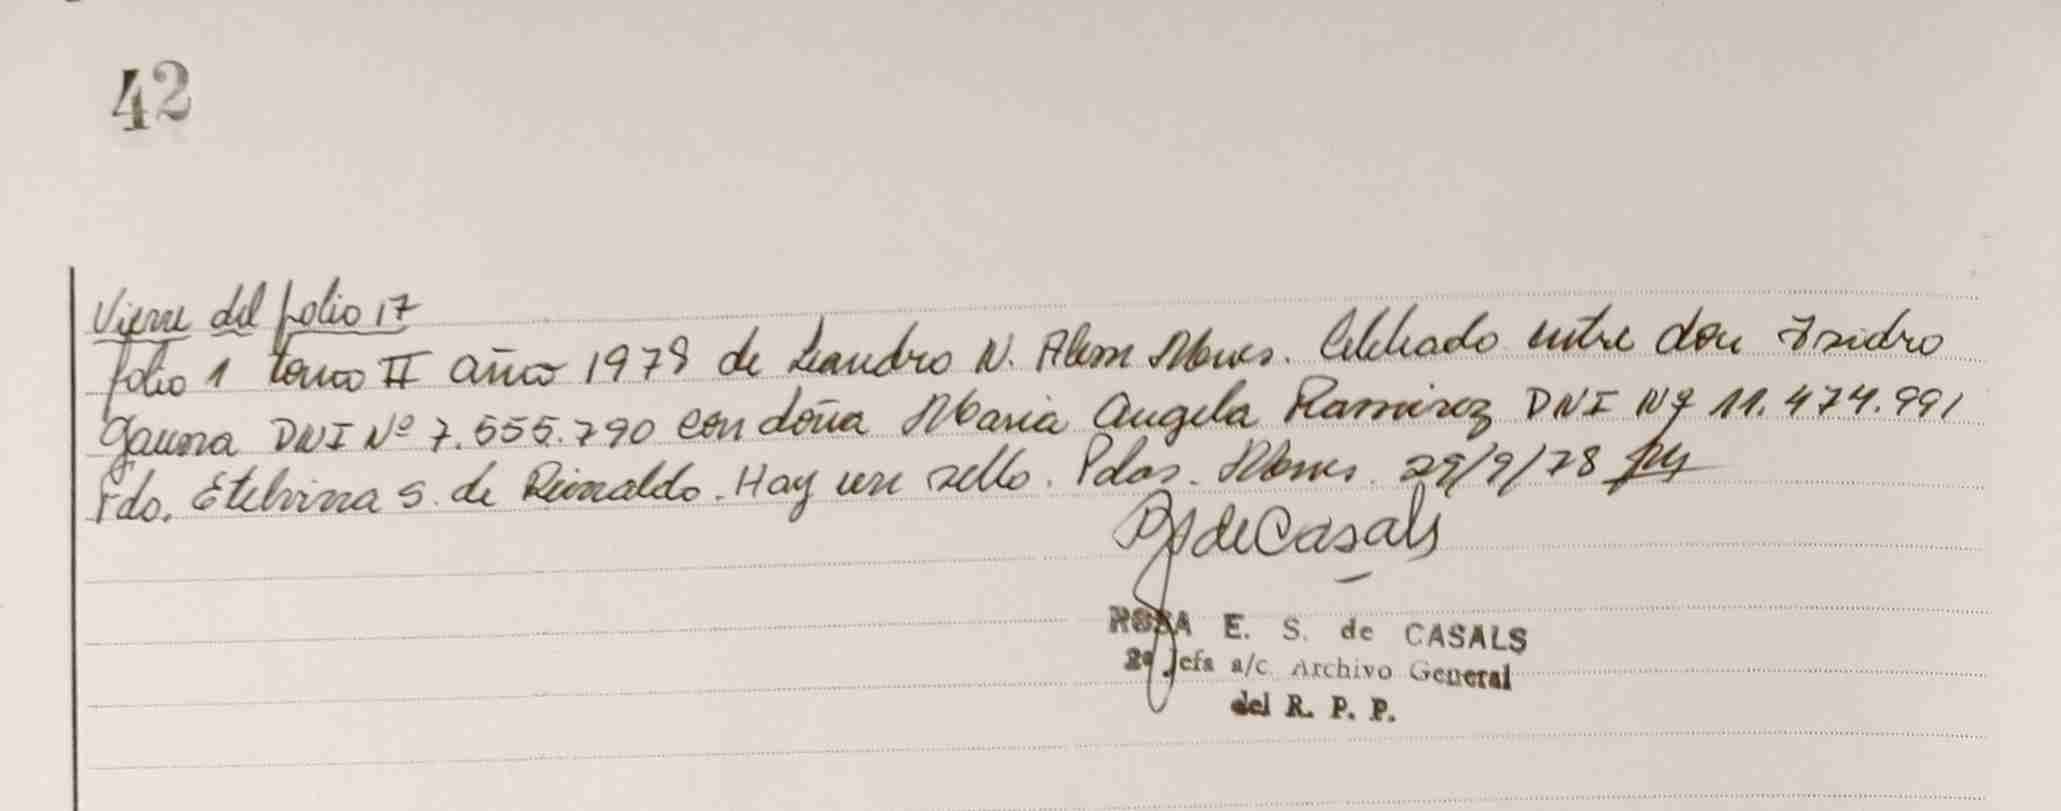 42
Viene del folio 17
folio 1 tomo II año 1978 de Leandro N. Alem Mnes. Celebrado entre don Isidro
Gauna DNI Nº 7.555.790 con doña Maria Angela Ramirez DNI Nº 11.474.991
Fdo. Etelvina S. de Rinaldo. Hay un sello. Pdas. Mnes. 29/9/78
RS de Casals
ROSA E. S. de CASALS
2º Jefa a/c Archivo General
del R. P. P.